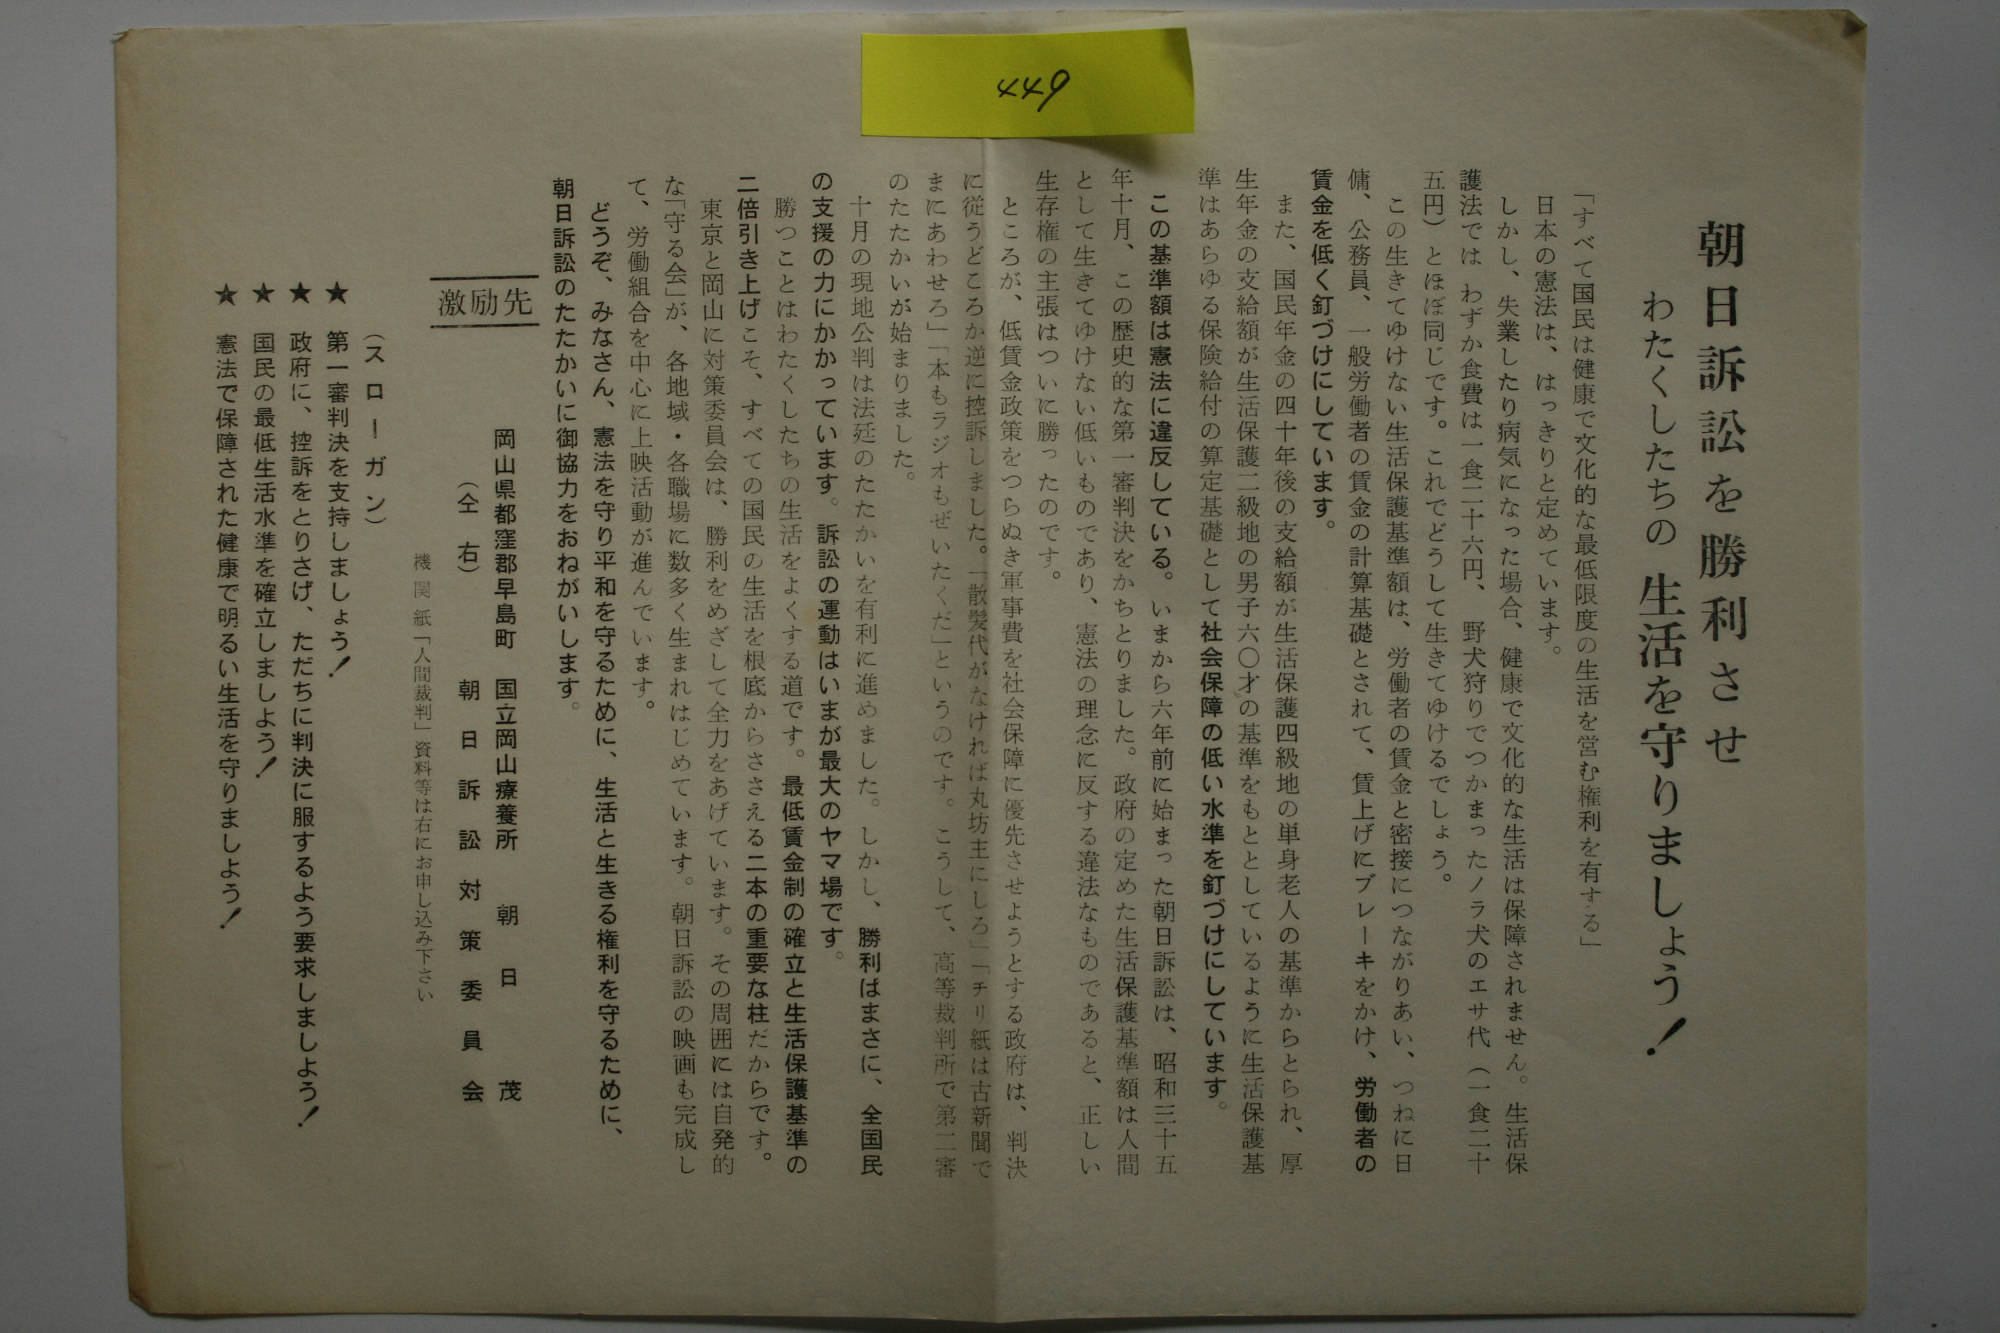 449
朝日訴訟を勝利させ
わたくしたちの生活を守りましょう!
「すべて国民は健康で文化的な最低限度の生活を営む権利を有する」
日本の憲法は、はっきりと定めています。
しかし、失業したり病気になった場合、健康で文化的な生活は保障されません。生活保
護法では わずか食費は一食二十六円、野犬狩りでつかまったノラ犬のエサ代(一食二十
五円)とほぼ同じです。これでどうして生きてゆけるでしょう。
この生きてゆけない生活保護基準額は、労働者の賃金と密接につながりあい、つねに日
傭、公務員、一般労働者の賃金の計算基礎とされて、賃上げにブレーキをかけ、労働者の
賃金を低く釘づけにしています。
また、国民年金の四十年後の支給額が生活保護四級地の単身老人の基準からとられ、厚
生年金の支給額が生活保護二級地の男子六〇才の基準をもととしているように生活保護基
準はあらゆる保険給付の算定基礎として社会保障の低い水準を釘づけにしています。
この基準額は憲法に違反している。いまから六年前に始まった朝日訴訟は、昭和三十五
年十月、この歴史的な第一審判決をかちとりました。政府の定めた生活保護基準額は人間
として生きてゆけない低いものであり、憲法の理念に反する違法なものであると、正しい
生存権の主張はついに勝ったのです。
ところが、低賃金政策をつらぬき軍事費を社会保障に優先させようとする政府は、判決
に従うどころか逆に控訴しました。「散髪代がなければ丸坊主にしろ」「チリ紙は古新聞で
まにあわせろ」「本もラジオもぜいたくだ」というのです。こうして、高等裁判所で第二審
のたたかいが始まりました。
十月の現地公判は法廷のたたかいを有利に進めました。しかし、勝利はまさに、全国民
の支援の力にかかっています。訴訟の運動はいまが最大のヤマ場です。
勝つことはわたくしたちの生活をよくする道です。最低賃金制の確立と生活保護基準の
二倍引き上げこそ、すべての国民の生活を根底からささえる二本の重要な柱だからです。
東京と岡山に対策委員会は、勝利をめざして全力をあげています。その周囲には自発的
な「守る会」が、各地域・各職場に数多く生まれはじめています。朝日訴訟の映画も完成し
て、労働組合を中心に上映活動が進んでいます。
どうぞ、みなさん、憲法を守り平和を守るために、生活と生きる権利を守るために、
朝日訴訟のたたかいに御協力をおねがいします。
激励先
岡山県都窪郡早島町 国立岡山療養所 朝日 茂
(仝右) 朝日訴訟対策委員会
機関紙「人間裁判」資料等は右にお申し込み下さい
(スローガン)
★ 第一審判決を支持しましょう!
★ 政府に、控訴をとりさげ、ただちに判決に服するよう要求しましよう!
★ 国民の最低生活水準を確立しましよう!
★ 憲法で保障された健康で明るい生活を守りましよう!